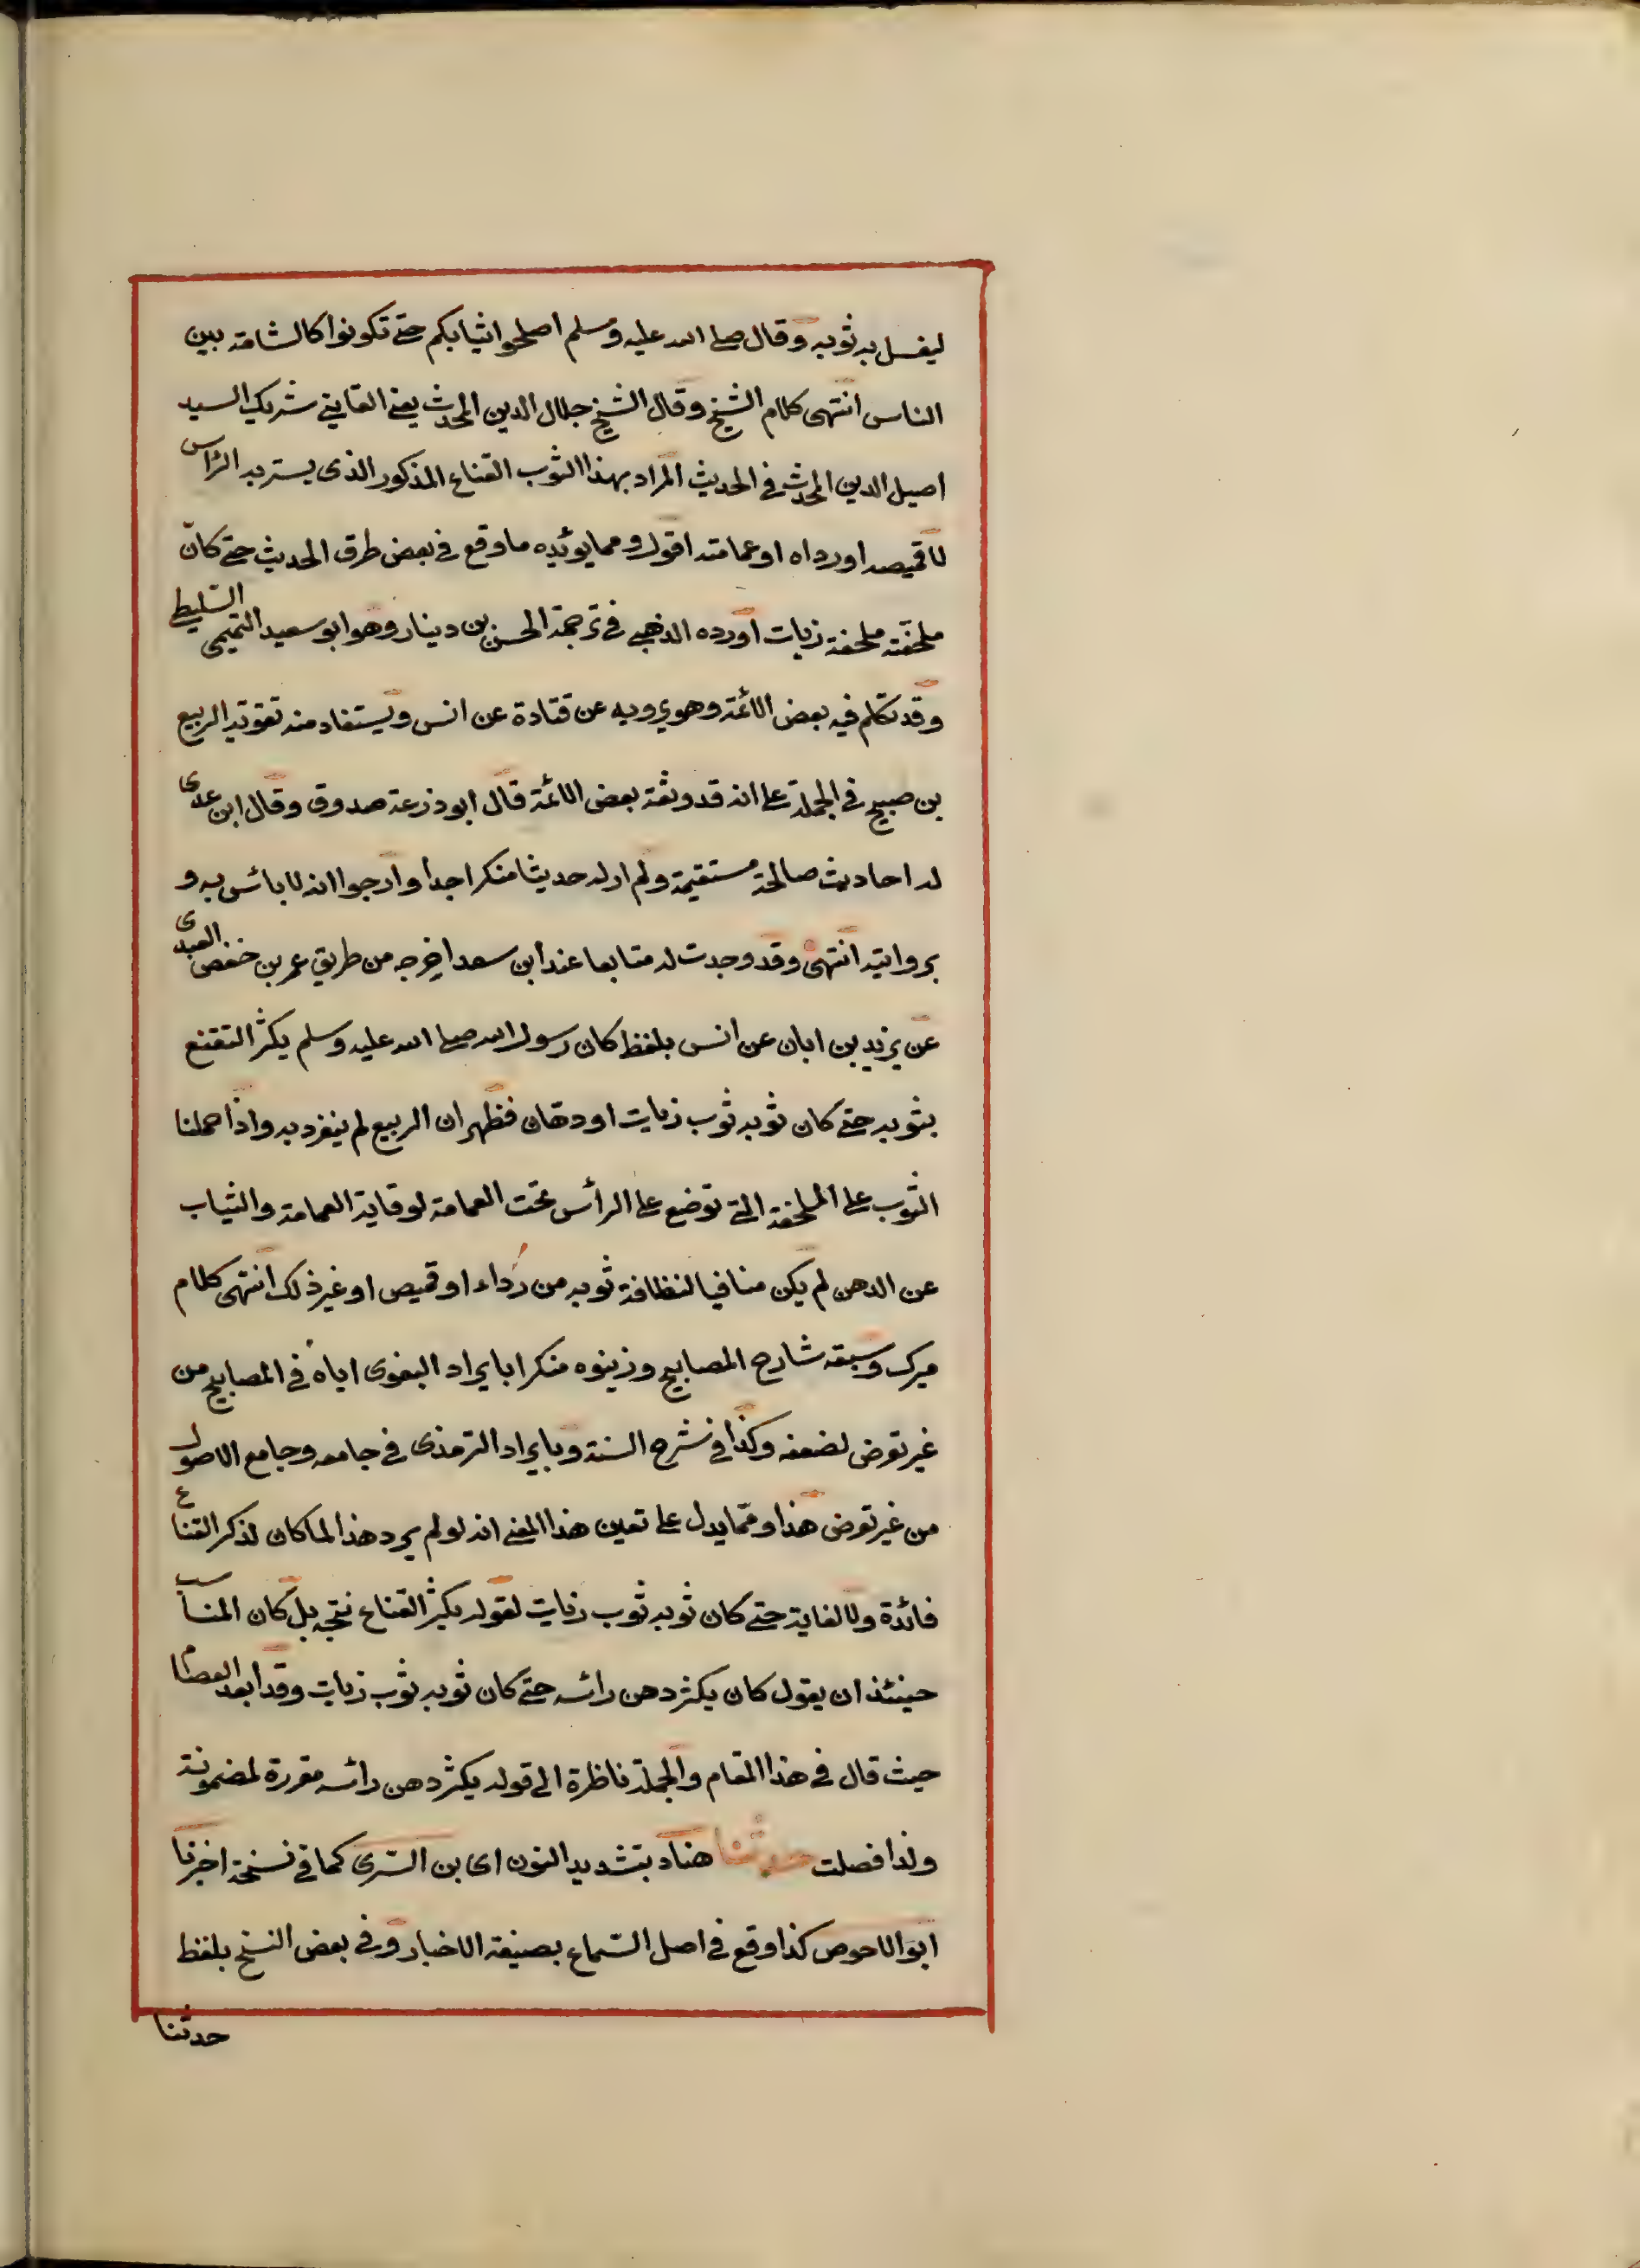 ليغسل به ثوبه وقال صلى الله عليه وسلم اصلحوا ثيابكم حتى تكونوا كالشامة بين
الناس انتهى كلام الشيخ وقال الشيخ جلال الدين المحدث يعنى القاينى شريك السيد
اصيل الدين المحدث فى الحديث المراد بهذا الثوب القناع المذكور الذى يستر به الرأس
لا قميصه او رداه او عمامته اقول ومما يوئيده ما وقع فى بعض طرق الحديث حتى كانّ
ملحفته ملحفة زيات اورده الذهبى فى ترجمة الحسن بن دينار وهو ابو سعيد التميمى السليطى
وقد تكلم فيه بعض الائمة وهو يرويه عن قتادة عن انس ويستفاد منه تقوية الربيع
بن صبيح فى الجملة على انه قد وثقه بعض الائمة قال ابو ذرعة صدوق وقال ابن عدى
له احاديث صالحة مستقيمة ولم ار له حديثا منكرا جدا وارجوا انه لا بائس به و
بروايته انتهى وقد وجدت له متابعا عند ابن سعد اخرجه من طريق عمر بن حفص العبدى
عن يزيد بن ابان عن انس بلفظ كان رسول الله صلى الله عليه وسلم يكثر التقنع
بثوبه حتى كان ثوبه ثوب زيات او دهان فظهر ان الربيع لم ينفرد به واذا حملنا
الثوب على الملحفة التى توضع على الرأس تحت العمامة لوقاية العمامة والثياب
عن الدهن لم يكن منافيا لنظافة ثوبه من رداء او قميص او غير ذلك انتهى كلام
ميرك وسبقه شارح المصابيح وزينوه منكرا بايراد البغوى اياه فى المصابيح من
غير توض لضعفه وكذا فى شرح السنة وبايراد الترمذى فى جامعه وجامع الاصول
من غير تعرض هذا ومما يدل على تعين هذا المعنى انه لو لم يرد هذا لما كان لذكر القناع
فائدة ولا لغاية حتى كان ثوبه ثوب زيات لقوله يكثر القناع نتيجه بل كان المناسب
حينئذ ان يقول كان يكثر دهن رائسه حتى كان ثوبه ثوب زيات وقد ابعد العصام
حيث قال فى هذا المقام والجملة ناظرة الى قوله يكثر دهن رائسه مقررة لمضمونه
ولذا فصلت حدثنا هناد بتشديد النون اى بن السرى كما فى نسخة اخبرنا
ابو الاحوص كذا وقع فى اصل السماع بصيغة الاخبار وفى بعض النسخ بلفظ
حدثنا